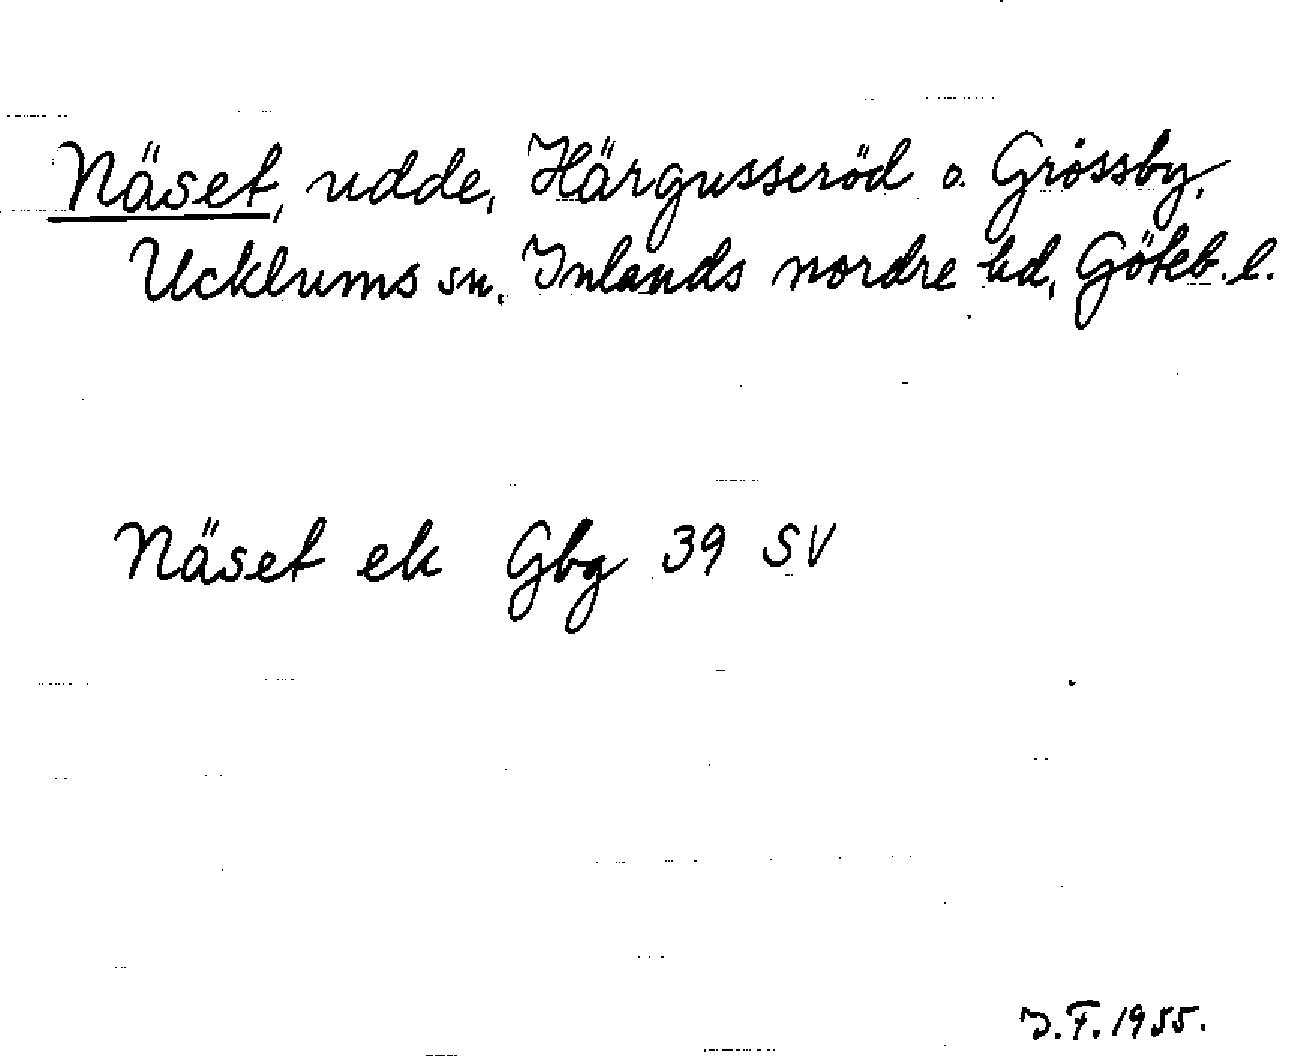 Näset, udde, Härgusseröd o. Grössby,
Ucklums sn, Inlands nordre hd, Göteb. l.
Näset ek Gbg 39 SV
I.F. 1955.